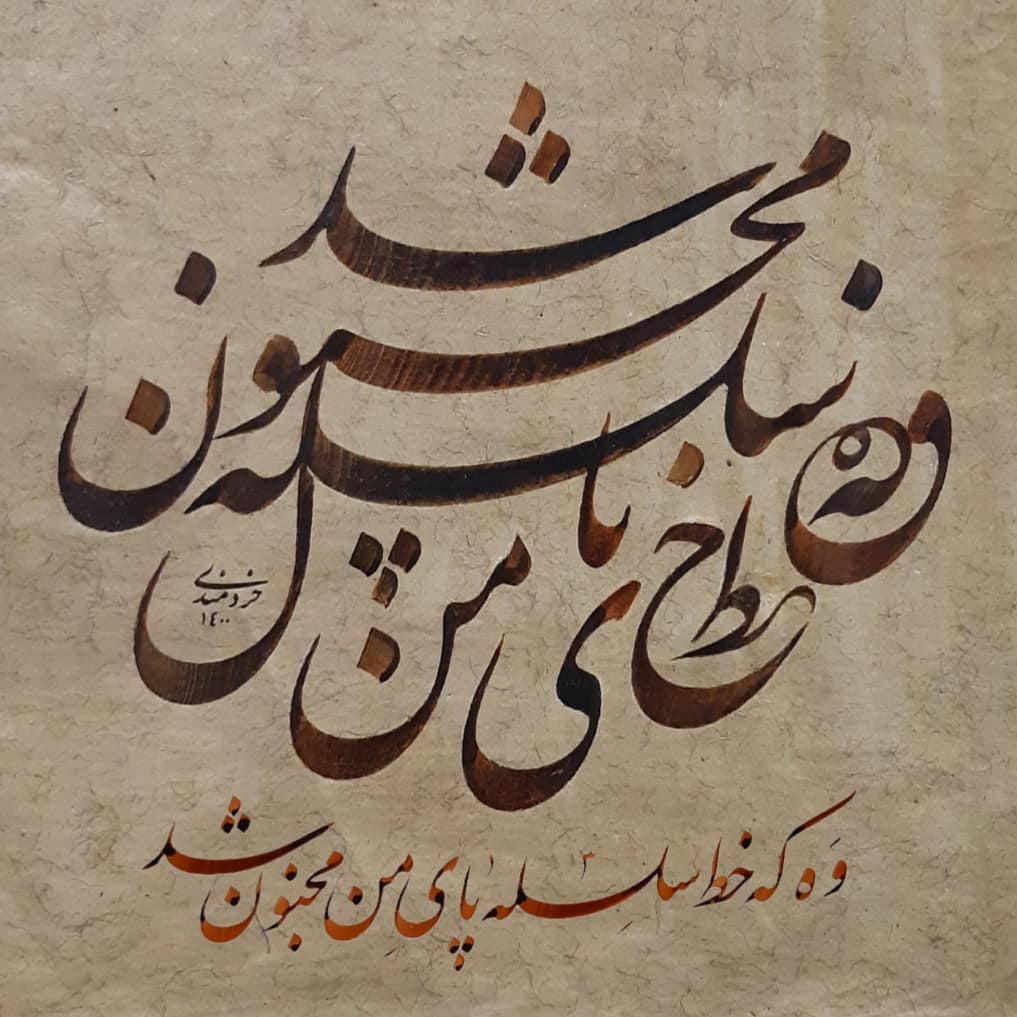 وه که خط سلسله پای من مجنون شد
خردمندی
۱۴۰۰
وَه که خط سلسله پای من مجنون شد